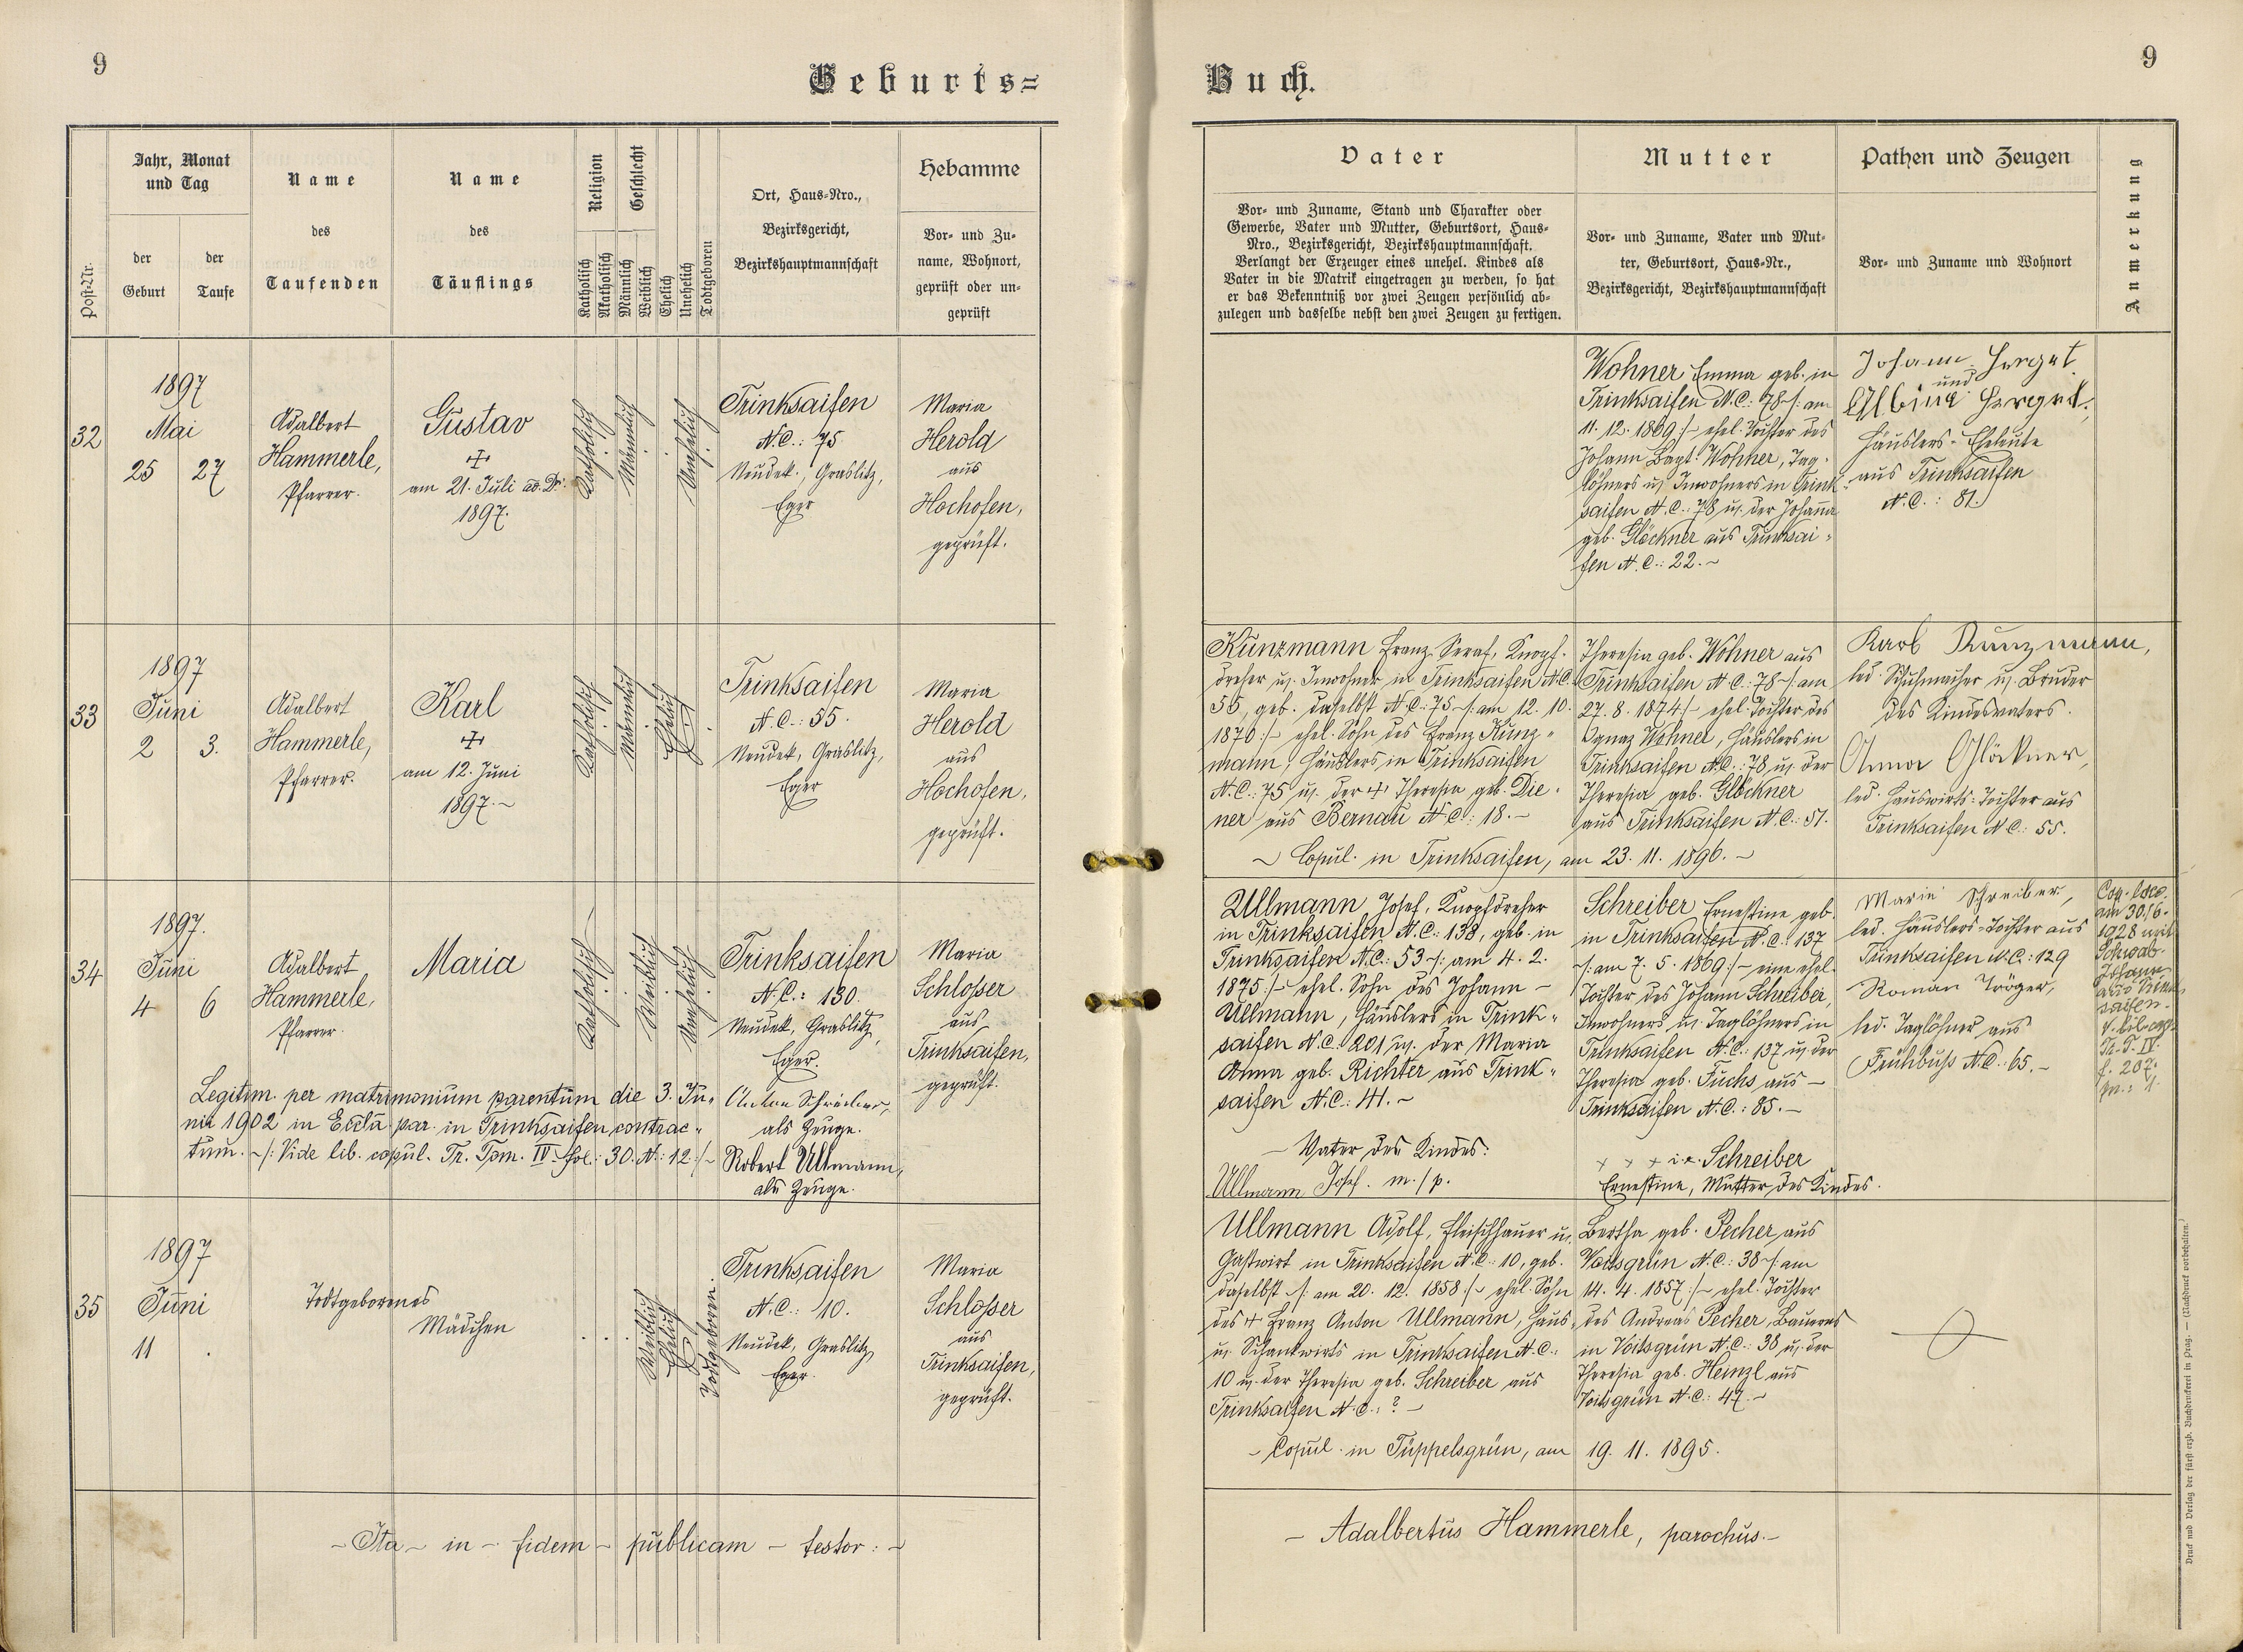 9
Geburts=
Post-Nr.
Jahr, Monat
und Tag
der
Geburt
der
Taufe
Name
des
Taufenden
Name
des
Täuflings
Religion
Katholisch
Akatholisch
Geschlecht
Männlich
Weiblich
Ehelich
Unehelich
Todtgeboren
Ort, Haus-Nro.,
Bezirksgericht,
Bezirkshauptmannschaft
Hebamme
Vor- und Zu-
name, Wohnort,
geprüft oder un-
geprüft
32
1897
Mai
25
27
Adalbert
Hammerle,
Pfarrer.
Gustav
+
am 21. Juli
1897.
Katholisch
Männlich
Unehelich
Trinksaifen
N.C.: 75
Neudek, Graslitz,
Eger
Maria
Herold
aus
Hochofen,
geprüft.
33
1897
Juni
2
3.
Adalbert
Hammerle,
Pfarrer.
Karl
+
am 12. Juni
1897.~
Katholisch
Männlich
Ehelich
Trinksaifen
N.C.: 55.
Neudek, Graslitz,
Eger
Maria
Herold
aus
Hochofen,
geprüft.
34
1897.
Juni
4
6
Adalbert
Hammerle,
Pfarrer.
Maria
Katholisch
Weiblich
Unehelich
Trinksaifen
N.C.: 130.
Neudek, Graslitz,
Eger.
Maria
Schlosser
aus
Trinksaifen,
geprüft.
Legitim. per matrimonium parentum die 3. Ju-
nii 1902 in Eccla par. in Trinksaifen contrac-
tum. ~/: Vide lib. copul. Tr. Tom. IV. fol.: 30. N.: 12 :/~
Anton Schreiber,
als Zeuge.
Robert Ullmann,
als Zeuge.
35
1897
Juni
11
.
Todtgeborenes
Mädchen
Weiblich
Ehelich
Todtgeboren.
Trinksaifen
N.C.: 10.
Neudek, Graslitz,
Eger.
Maria
Schlosser
aus
Trinksaifen,
geprüft.
~ Ita ~ in ~ fidem ~ publicam ~ testor: ~
Buch.
9
Vater
Vor- und Zuname, Stand und Charakter oder
Gewerbe, Vater und Mutter, Geburtsort, Haus-
Nro., Bezirksgericht, Bezirkshauptmannschaft.
Verlangt der Erzeuger eines unehel. Kindes als
Vater in die Matrik eingetragen zu werden, so hat
er das Bekenntniß vor zwei Zeugen persönlich ab-
zulegen und dasselbe nebst den zwei Zeugen zu fertigen.
Mutter
Vor- und Zuname, Vater und Mut-
ter, Geburtsort, Haus-Nr.,
Bezirksgericht, Bezirkshauptmannschaft
Pathen und Zeugen
Vor- und Zuname und Wohnort
Anmerkung
Wohner Emma geb. in
Trinksaifen N.C.: 78 /: am
11. 12. 1869 :/~ ehel. Tochter des
Johann Bapt. Wohner, Tag-
löhners u. Inwohners in Trink-
saifen N.C.: 78 u. der Johanna
geb. Glöckner aus Trinksai-
fen N.C.: 22.~
Johann Herget
und
Albina Herget,
Häuslers-Eheleute
aus Trinksaifen
N.C.: 81.
Kunzmann Franz Seraf, Knopf-
dreher u. Inwohner in Trinksaifen N.C.
55, geb. daselbst N.C.: 75 ~/: am 12. 10.
1870 :/~ ehel. Sohn des Franz Kunz-
mann, Häuslers in Trinksaifen
N.C.: 75 u. der + Theresia geb. Die-
ner aus Bernau N.C.: 18.~
Theresia geb. Wohner aus
Trinksaifen N.C.: 78 ~/: am
27. 8. 1874 :/~ ehel. Tochter des
Ignaz Wohner, Häuslers in
Trinksaifen N.C.: 78 u. der
Theresia geb. Glöckner
aus Trinksaifen N.C.: 51.
~ Copul. in Trinksaifen, am 23. 11. 1896. ~
Karl Kunzmann,
led. Schuhmacher u. Bruder
des Kindesvaters.
Anna Glöckner,
led. Hauswirts-Tochter aus
Trinksaifen N.C.: 55.
Ullmann Josef, Knopfdreher
in Trinksaifen N.C.: 138, geb. in
Trinksaifen N.C.: 53 ~/: am 4. 2.
1875 :/~ ehel. Sohn des Johann ~
Ullmann, Häuslers in Trink-
saifen N.C.: 201 u. der Maria
Anna geb. Richter aus Trink-
saifen N.C.: 41.~
~ Vater des Kindes:
Ullmann Josef. m./p.
Schreiber Ernestine geb.
in Trinksaifen N.C.: 137
~/: am 7. 5. 1869 :/~ eine ehel.
Tochter des Johann Schreiber,
Inwohners u. Taglöhners in
Trinksaifen N.C.: 137 u. der
Theresia geb. Fuchs aus ~
Trinksaifen N.C.: 85.~
+ + + i. e. Schreiber
Ernestine, Mutter des Kindes.
Marie Schreiber,
led. Häuslers-Tochter aus
Trinksaifen N.C.: 129
Roman Tröger,
led. Taglöhner aus
Frühbuß N.C.: 65.~
Cop. loco
am 30./6.
1928 mit
Schwab
Johann
aus Trink-
saifen.
v. lib. cop.
Tr. T. IV.
f. 207.
Ullmann Adolf, Fleischhauer u.
Gastwirt in Trinksaifen N.C.: 10, geb.
daselbst ~/: am 20. 12. 1858 :/~ ehel. Sohn
des + Franz Anton Ullmann, Haus-
u. Schankwirts in Trinksaifen N.C.:
10 u. der Theresia geb. Schreiber aus
Trinksaifen N.C.: ? ~
Bertha geb. Pecher aus
Voitsgrün N.C.: 38 ~/: am
14. 4. 1857 :/~ ehel. Tochter
des Andreas Pecher, Bauers
in Voitsgrün N.C.: 38 u. der
Theresia geb. Heinzl aus
Voitsgrün N.C.: 47.~
~ Copul. in Tüppelsgrün, am 19. 11. 1895.
~ Adalbertus Hammerle, parochus.~
Druck und Verlag der fürst-erzb. Buchdruckerei in Prag. — (Nachdruck vorbehalten.)